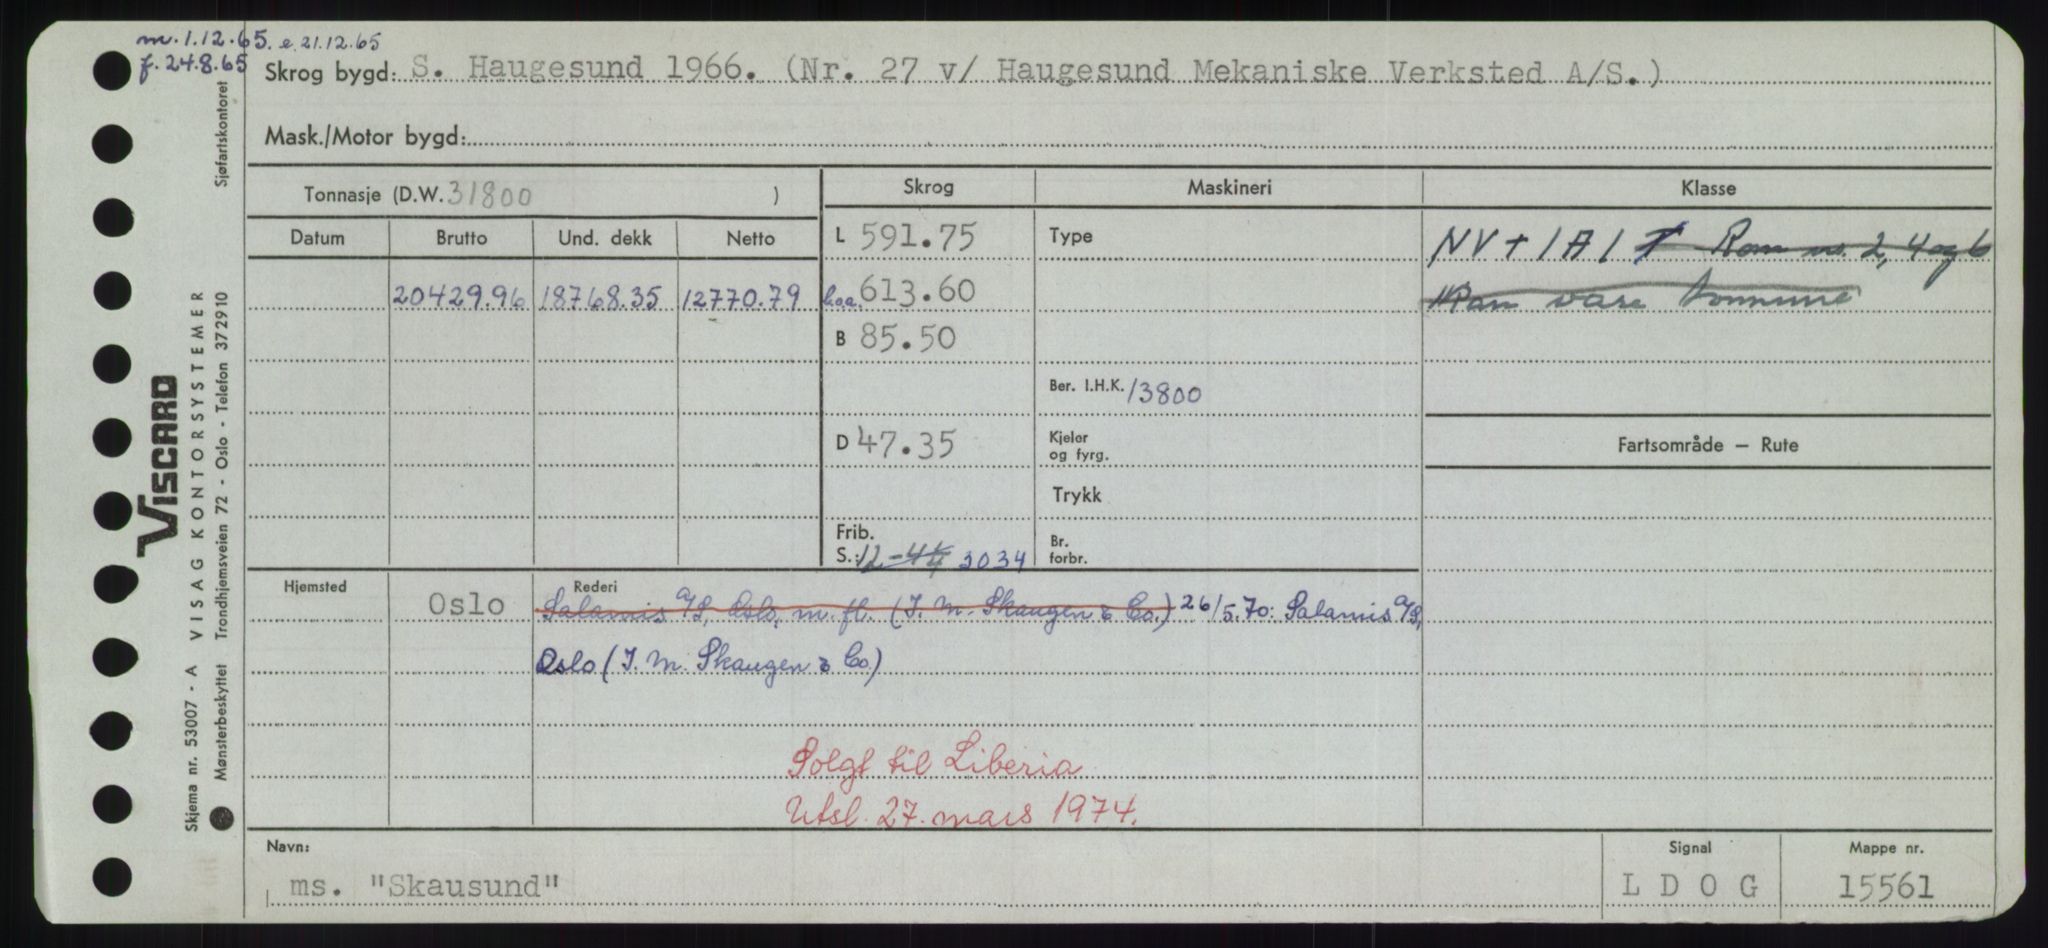 m. 1.12.65. e. 21.12.65
f. 24.8.65
Skrog bygd: S. Haugesund 1966. (Nr. 27 v/ Haugesund Mekaniske Verksted A/S.)
Mask./Motor bygd:
Tonnasje (D.W. 31800 )
Skrog Maskineri Klasse
Datum Brutto Und. dekk Netto
L 591.75 Type NV + 1A1 Rom nr. 2, 4 og 6
20429.96 18768.35 12770.79 l.o.a. 613.60 kan være tomme
B 85.50
Ber. I.H.K. 13800
D 47.35 Kjeler og fyrg. Fartsområde — Rute
Trykk
Frib. S.: 12-4 3034 Br. forbr.
Hjemsted Rederi
Oslo Salamis A/S, Oslo, m. fl. (I. M. Skaugen & Co.) 26/5.70: Salamis A/S,
Oslo (I. M. Skaugen & Co.)
Solgt til Liberia
Utsl. 27. mars 1974.
Navn: Signal Mappe nr.
ms. "Skausund" L D O G 15561
VISCARD
Skjema nr. 53007 - A VISAG KONTORSYSTEMER
Mønsterbeskyttet Trondhjemsveien 72 - Oslo - Telefon 372910 Sjøfartskontoret